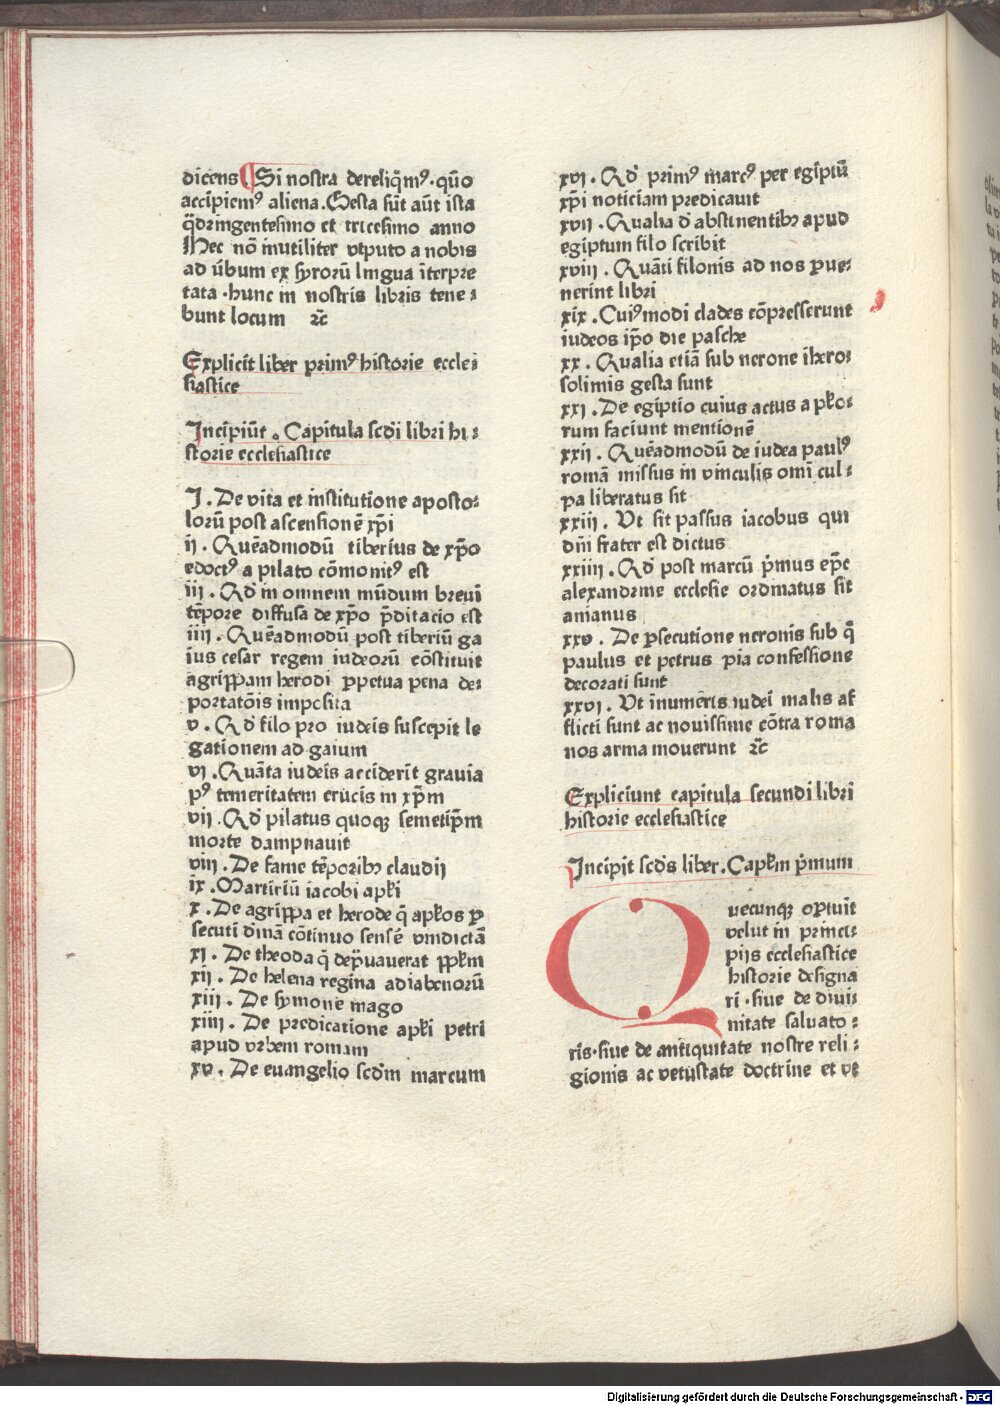 dicens Si nostra dereliq̄mꝰ· quō
accipiemꝰ aliena. Gesta sūt aūt ista
q̄dringentesimo et tricesimo anno
Hec nō inutiliter vtputo a nobis
ad ūbum ex syrorū lingua īterpre
tata ·hunc in nostris libris tene⸗
bunt locum ⁊c̄
Explicit liber primꝰ historie eccle⸗
siastice
Incipiūt. Capitula scdi libri hi⸗
storie ecclesiastice
I. De vita et institutione aposto⸗
lorū post ascensionē xp̄i
ij. Quēadmodū tiberius de xp̄o
edoctꝰ a pilato cōmonitꝰ est
iij. Qd̓ in omnem mūdum breui
tēpore diffusa de xp̄o p̄ditacio est
iiij. Quēadmodū post tiberiū ga
ius cesar regem iudeorū cōstituit
agrippam herodi ꝑpetua pena de⸗
portatōis imposita
v. Qd̓ filo pro iudeis suscepit le
gationem ad gaium
vj. Quāta iudeis acciderīt grauia
pꝰ temeritatem crucis in xp̄m
vij. Qd̓ pilatus quoqꝫ semetip̄m
morte dampnauit
viij. De fame tēporibꝫ claudij
ix. Martiriū iacobi apłi
x. De agrippa et herode q̄ apłos ꝑ
secuti diuinā cōtinuo sensē vindictā
xj. De theoda q̄ dep̄uauerat ppłm
xij. De helena regina adiabenorū
xiij. De symone mago
xiiij. De predicatione apłi petri
apud vrbem romam
xv. De euangelio scdm marcum
xvj. Qd̓ primꝰ marcꝰ per egiptū
xp̄i noticiam predicauit
xvij. Qualia d̓ abstinentibꝫ apud
egiptum filo scribit
xviij. Quāti filonis ad nos pue⸗
nerint libri
xix. Cuiꝰmodi clades cōpresserunt
iudeos ip̄o die pasche
xx. Qualia etiā sub nerone ihero⸗
solimis gesta sunt
xxj. De egiptio cuius actus apło⸗
rum faciunt mentionē
xxij. Quēadmodū de iudea paulꝰ
romā missus in vinculis omī cul⸗
pa liberatus sit
xxiij. Vt sit passus iacobus qui
dn̄i frater est dictus
xxiiij. Qd̓ post marcū p̓mus ep̄c
alexandrine ecclesie ordinatus sit
anianus
xxv. De ꝑsecutione neronis sub q̄
paulus et petrus pia confessione
decorati sunt
xxvj. Vt īnumeris iudei malis af
flicti sunt ac nouissime cōtra roma
nos arma mouerunt ⁊c̄
Expliciunt capitula secundi libri
historie ecclesiastice
Incipit scds liber. Capłm p̓mum
Quecunqꝫ optuīt
velut in princi⸗
pijs ecclesiastice
historie designa
ri · siue de diui⸗
nitate saluato⸗
ris·siue de antiquitate nostre reli⸗
gionis ac vetustate doctrine et ve
Digitalisierung gefördert durch die Deutsche Forschungsgemeinschaft - DFG